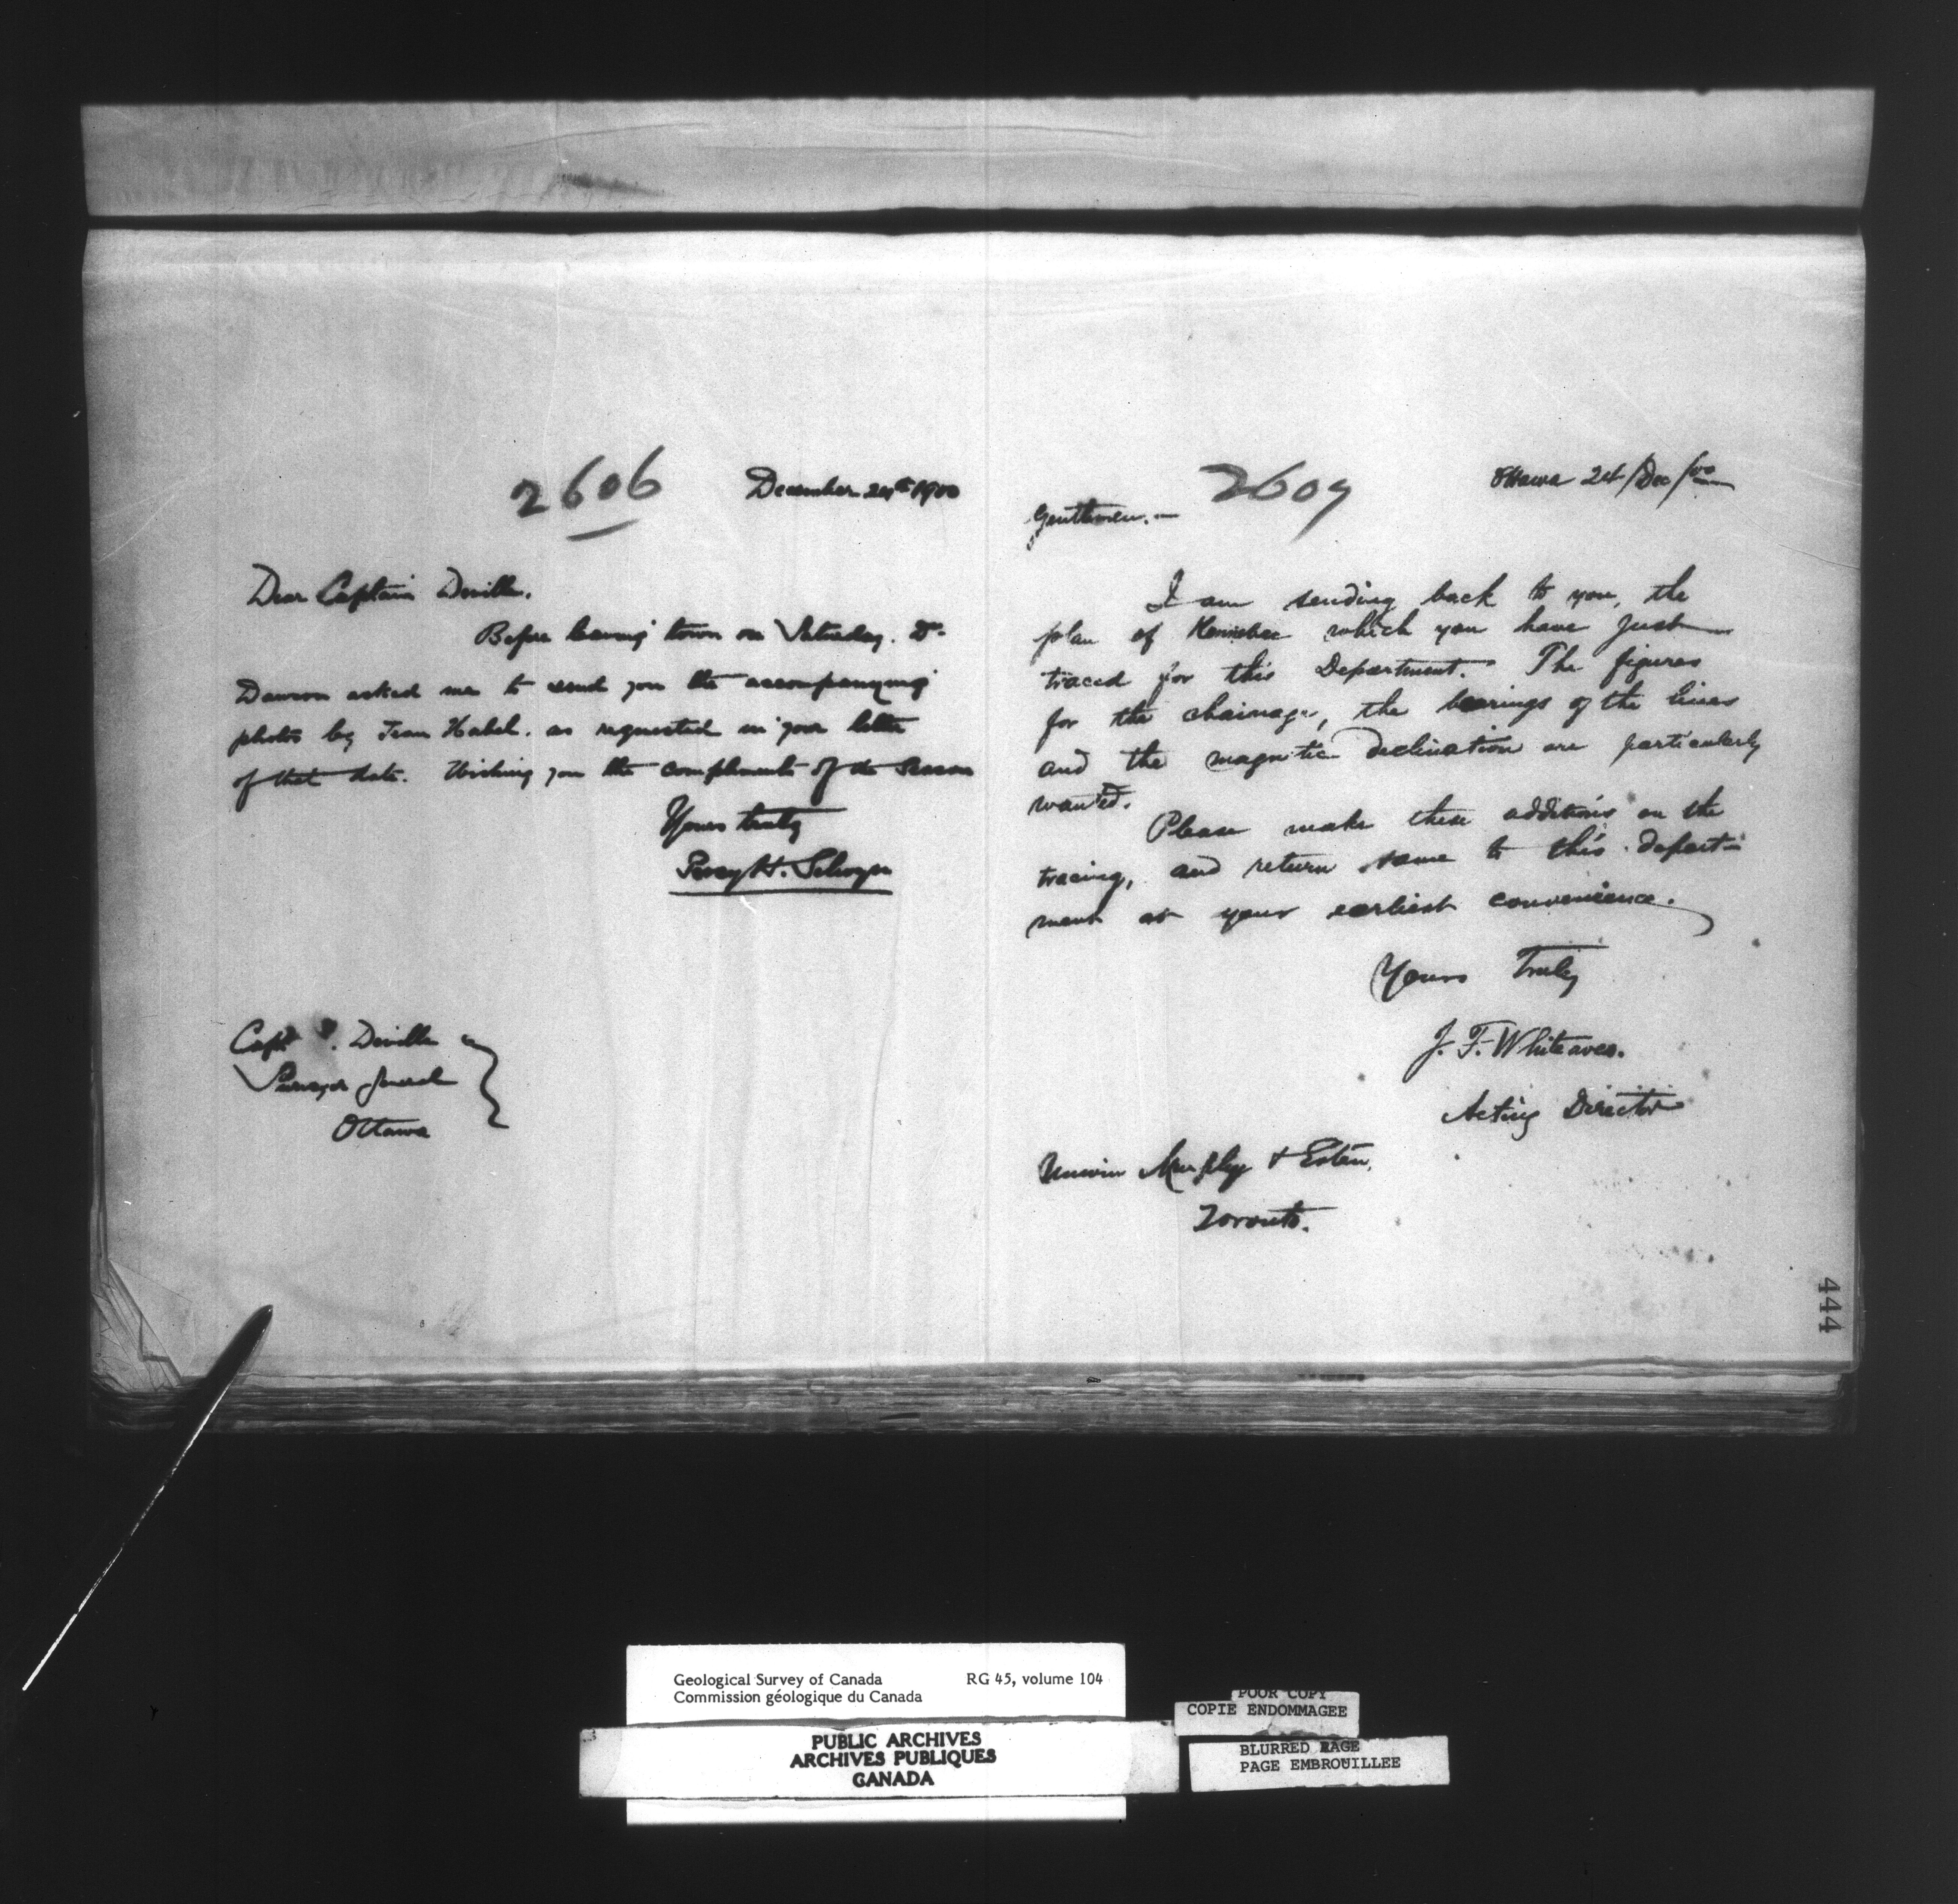 2606
December 24th 1900
Dear Captain Deville.
Before leaving town on Saturday. Dr.
Dawson asked me to send you the accompanying
photos by Jean Habel. as requested in your letter
of that date. Wishing you the compliments of the Season
Yours truly
Percy H. Selwyn
Capt . Deville
Surveyor General
Ottawa
2607
Ottawa 24/Dec/00
Gentlemen.—
I am sending back to you, the
plan of Kennebec which you have just
traced for this Department. The figures
for the chainage, the bearings of the lines
and the magnetic declination are particularly
wanted.
Please make these additions on the
tracing, and return same to this depart-
ment at your earliest convenience.
Yours Truly
J. F. Whiteaves.
Acting Director
Unwin Murphy & Esten,
Toronto.
444
Geological Survey of Canada RG 45, volume 104
Commission géologique du Canada
PUBLIC ARCHIVES
ARCHIVES PUBLIQUES
CANADA
POOR COPY
COPIE ENDOMMAGEE
BLURRED PAGE
PAGE EMBROUILLEE